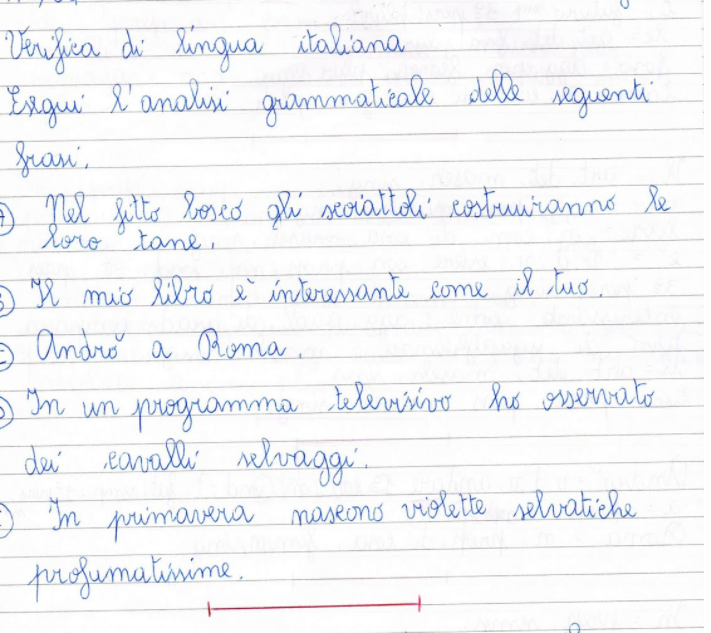 Verifica di lingua italiana
Esegui l'analisi grammaticale delle seguenti
frasi.
A) Nel fitto bosco gli scoiattoli costruiranno le
loro tane.
B) Il mio libro è interessante come il tuo.
C) Andrò a Roma.
D) In un programma televisivo ho osservato
dei cavalli selvaggi.
E) In primavera nascono violette selvatiche
profumatissime.